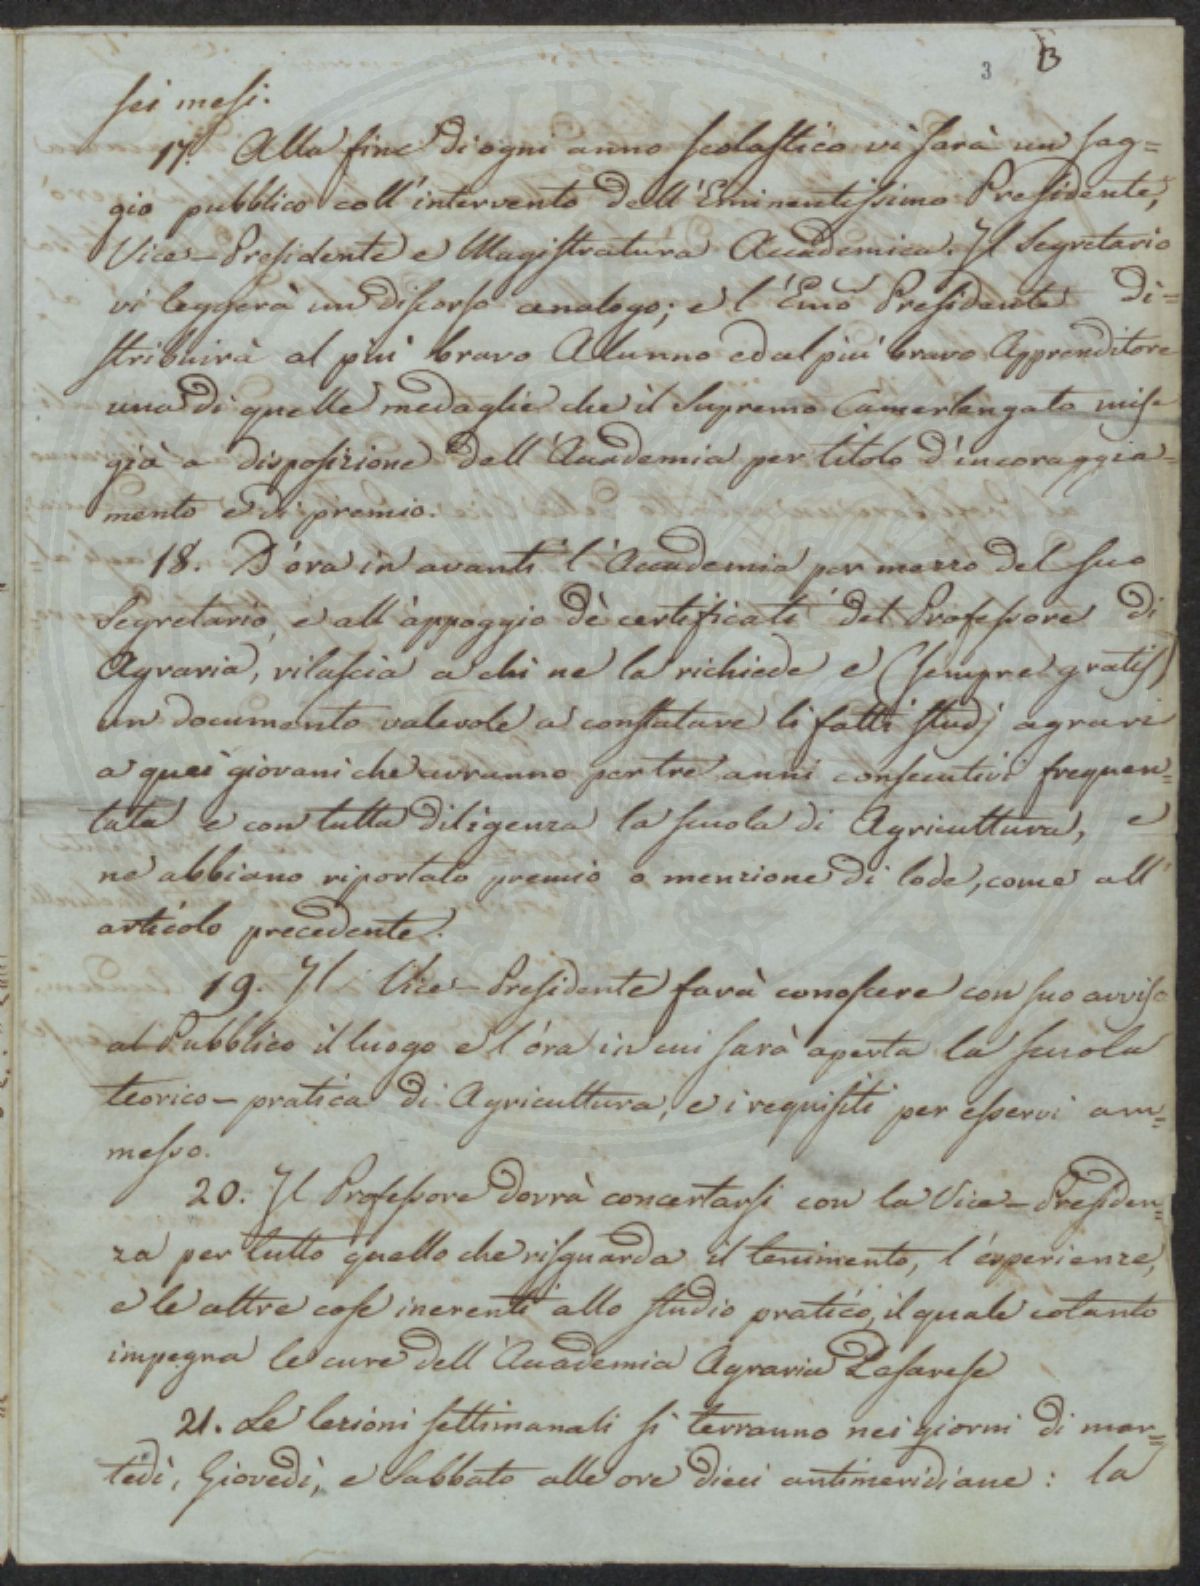 3 B
sei mesi.
17. Alla fine di ogni anno scolastico vi sarà un sag=
gio pubblico coll'intervento dell'Eminentissimo Presidente,
Vice-Presidente e Magistratura Accademica. Il Segretario
vi leggerà un discorso analogo; e l'Emo Presidente di=
stribuirà al più bravo Alunno ed al più bravo Apprenditore
una di quelle medaglie che il Supremo Camerlengato mise
già a disposizione dell'Accademia per titolo d'incoraggia=
mento e di premio.
18. D'ora in avanti l'Accademia per mezzo del suo
Segretario, e all'appoggio de' certificati del Professore di
Agraria, rilascia a chi ne la richiede e (sempre gratis)
un documento valevole a constatare li fatti studj agrari
a quei giovani che avranno per tre anni consecutivi frequen=
tata e con tutta diligenza la scuola di Agricultura, e
ne abbiano riportato premio o menzione di lode, come all'
articolo precedente.
19. Il Vice-Presidente farà conoscere con suo avviso
al Pubblico il luogo e l'ora in cui sarà aperta la scuola
teorico-pratica di Agricultura, e i requisiti per esservi am=
messo.
20. Il Professore dovrà concertarsi con la Vice-Presiden=
za per tutto quello che risguarda il tenimento, l'esperienze,
e le altre cose inerenti allo studio pratico, il quale cotanto
impegna le cure dell'Accademia Agraria Pesarese
21. Le lezioni settimanali si terranno nei giorni di mar=
tedì, Giovedì, e Sabbato alle ore dieci antimeridiane: la